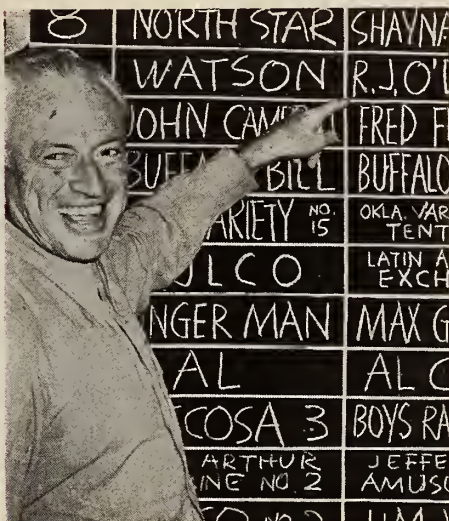 8 NORTH STAR SHAYNA
WATSON R.J. O'
JOHN CAM FRED F
BUFFA BILL BUFFALO
ARIETY NO. 15 OKLA. VAR
TENT
JLCO LATIN A
EXCH
NGER MAN MAX G
AL AL C
COSA 3 BOYS RA
ARTHUR JEFFE
INE NO. 2 AMUS